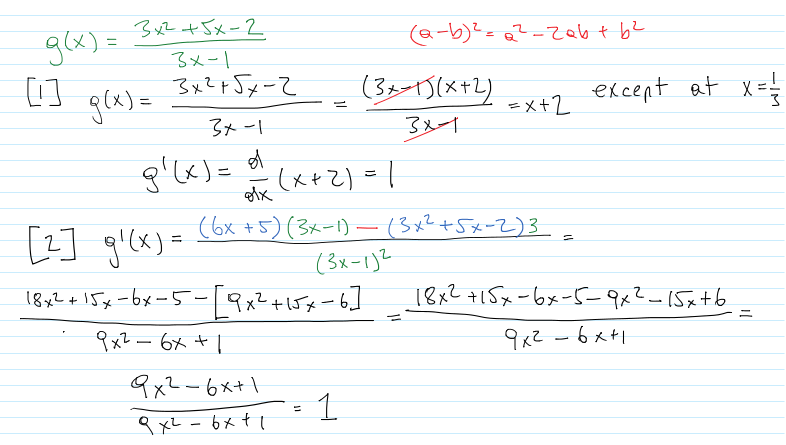 g(x) = (3x² + 5x - 2)/(3x - 1)
(a-b)² = a² - 2ab + b²
[1] g(x) = (3x² + 5x - 2)/(3x - 1) = ((3x-1)(x+2))/(3x-1) = x+2 except at x = 1/3
g'(x) = d/dx (x+2) = 1
[2] g'(x) = ((6x+5)(3x-1) - (3x² + 5x - 2)3)/(3x-1)² =
(18x² + 15x - 6x - 5 - [9x² + 15x - 6])/(9x² - 6x + 1) = (18x² + 15x - 6x - 5 - 9x² - 15x + 6)/(9x² - 6x + 1) =
(9x² - 6x + 1)/(9x² - 6x + 1) = 1